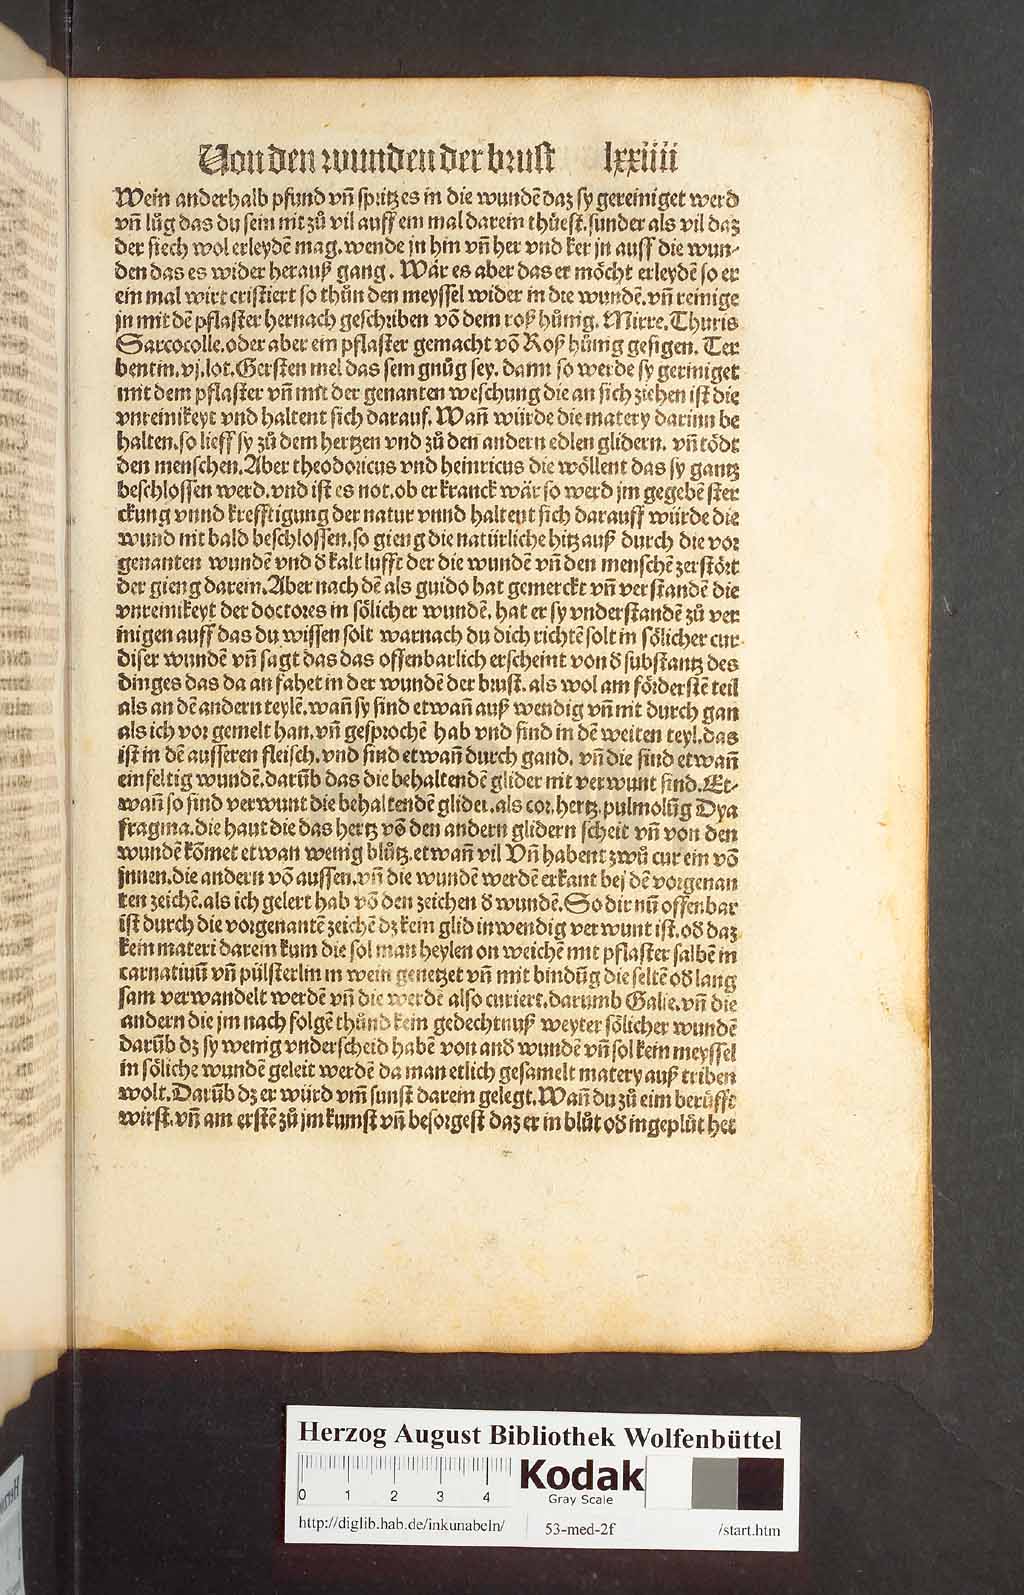 Von den wunden der brust lxxiiii
Wein anderhalb pfund vñ spritz es in die wundẽ daz sy gereiniget werd
vñ lůg das du sein nit zů vil auff ein mal darein thůest. sunder als vil daz
der siech wol erleydẽ mag. wende jn hin vñ her vnd ker jn auff die wun-
den das es wider herauß gang. Wår es aber das er mócht erleydẽ so er
ein mal wirt cristiert so thůn den meyssel wider in die wundẽ. vñ reinige
jn mit dẽ pflaster hernach geschriben võ dem roß hůnig. Mirre. Thuris
Sarcocolle. oder aber ein pflaster gemacht võ Roß hůnig gesigen. Ter
bentin. vj. lot. Gersten mel das sein gnůg sey. dann so werde sy geriniget
mit dem pflaster vñ mit der genanten weschung die an sich ziehen ist die
vnreinikeyt vnd haltent sich darauf. Wañ würde die matery darinn be
halten. so lieff sy zů dem hertzen vnd zů den andern edlen glidern. vñ tódt
den menschen. Aber theodoricus vnd heinricus die wóllent das sy gantz
beschlossen werd. vnd ist es not. ob er kranck wår so werd jm gegebẽ ster
ckung vnnd krefftigung der natur vnnd haltent sich darauff würde die
wund nit bald beschlossen. so gieng die natürliche hitz auß durch die vor
genanten wundẽ vnd δ kalt lufft der die wundẽ vñ den menschẽ zerstórt
der gieng darein. Aber nach dẽ als guido hat gemerckt vñ verstandẽ die
vnreinikeyt der doctores in sólicher wundẽ. hat er sy vnderstandẽ zů ver
inigen auff das du wissen solt warnach du dich richtẽ solt in sólicher cur
diser wundẽ vñ sagt das das offenbarlich erscheint von δ substantz des
dinges das da an fahet in der wundẽ der brust. als wol am fórderstẽ teil
als an dẽ andern teylẽ. wañ sy sind etwañ auß wendig vñ nit durch gan
als ich vor gemelt han. vñ gesprochẽ hab vnd sind in dẽ weiten teyl. das
ist in dẽ ausseren fleisch. vnd sind etwañ durch gand. vñ die sind etwañ
einfeltig wundẽ. darũb das die behaltendẽ glider nit verwunt sind. Et-
wañ so sind verwunt die behaltendẽ glider. als cor. hertz. pulmo lũg Dya
fragma. die haut die das hertz võ den andern glidern scheit vñ von den
wundẽ kõmet etwan wenig blůtz. etwañ vil Vñ habent zwů cur ein võ
jnnen. die andern võ aussen. vñ die wundẽ werdẽ erkant bej dẽ vorgenan
ten zeichẽ. als ich gelert hab võ den zeichen δ wundẽ. So dir nũ offenbar
ist durch die vorgenantẽ zeichẽ dz kein glid inwendig verwunt ist. oδ daz
kein materi darein kum die sol man heylen on weichẽ mit pflaster salbẽ in
carnatiuũ vñ pülsterlin in wein genetzet vñ mit bindũg die seltẽ oδ lang
sam verwandelt werdẽ vñ die werdẽ also curiert. darumb Galie. vñ die
andern die jm nach folgẽ thůnd kein gedechtnuß weyter sólicher wundẽ
darũb dz sy wenig vnderscheid habẽ von anδ wundẽ vñ sol kein meyssel
in sóliche wundẽ geleit werdẽ da man etlich gesamelt matery auß triben
wolt. Darũb dz er würd vm̃ sunst darein gelegt. Wañ du zů eim berüfft
wirst. vñ am erstẽ zů jm kumst vñ besorgest daz er in blůt oδ ingeplůt het
Herzog August Bibliothek Wolfenbüttel
0 1 2 3 4
Kodak
Gray Scale
http://diglib.hab.de/inkunabeln/ 53-med-2f /start.htm